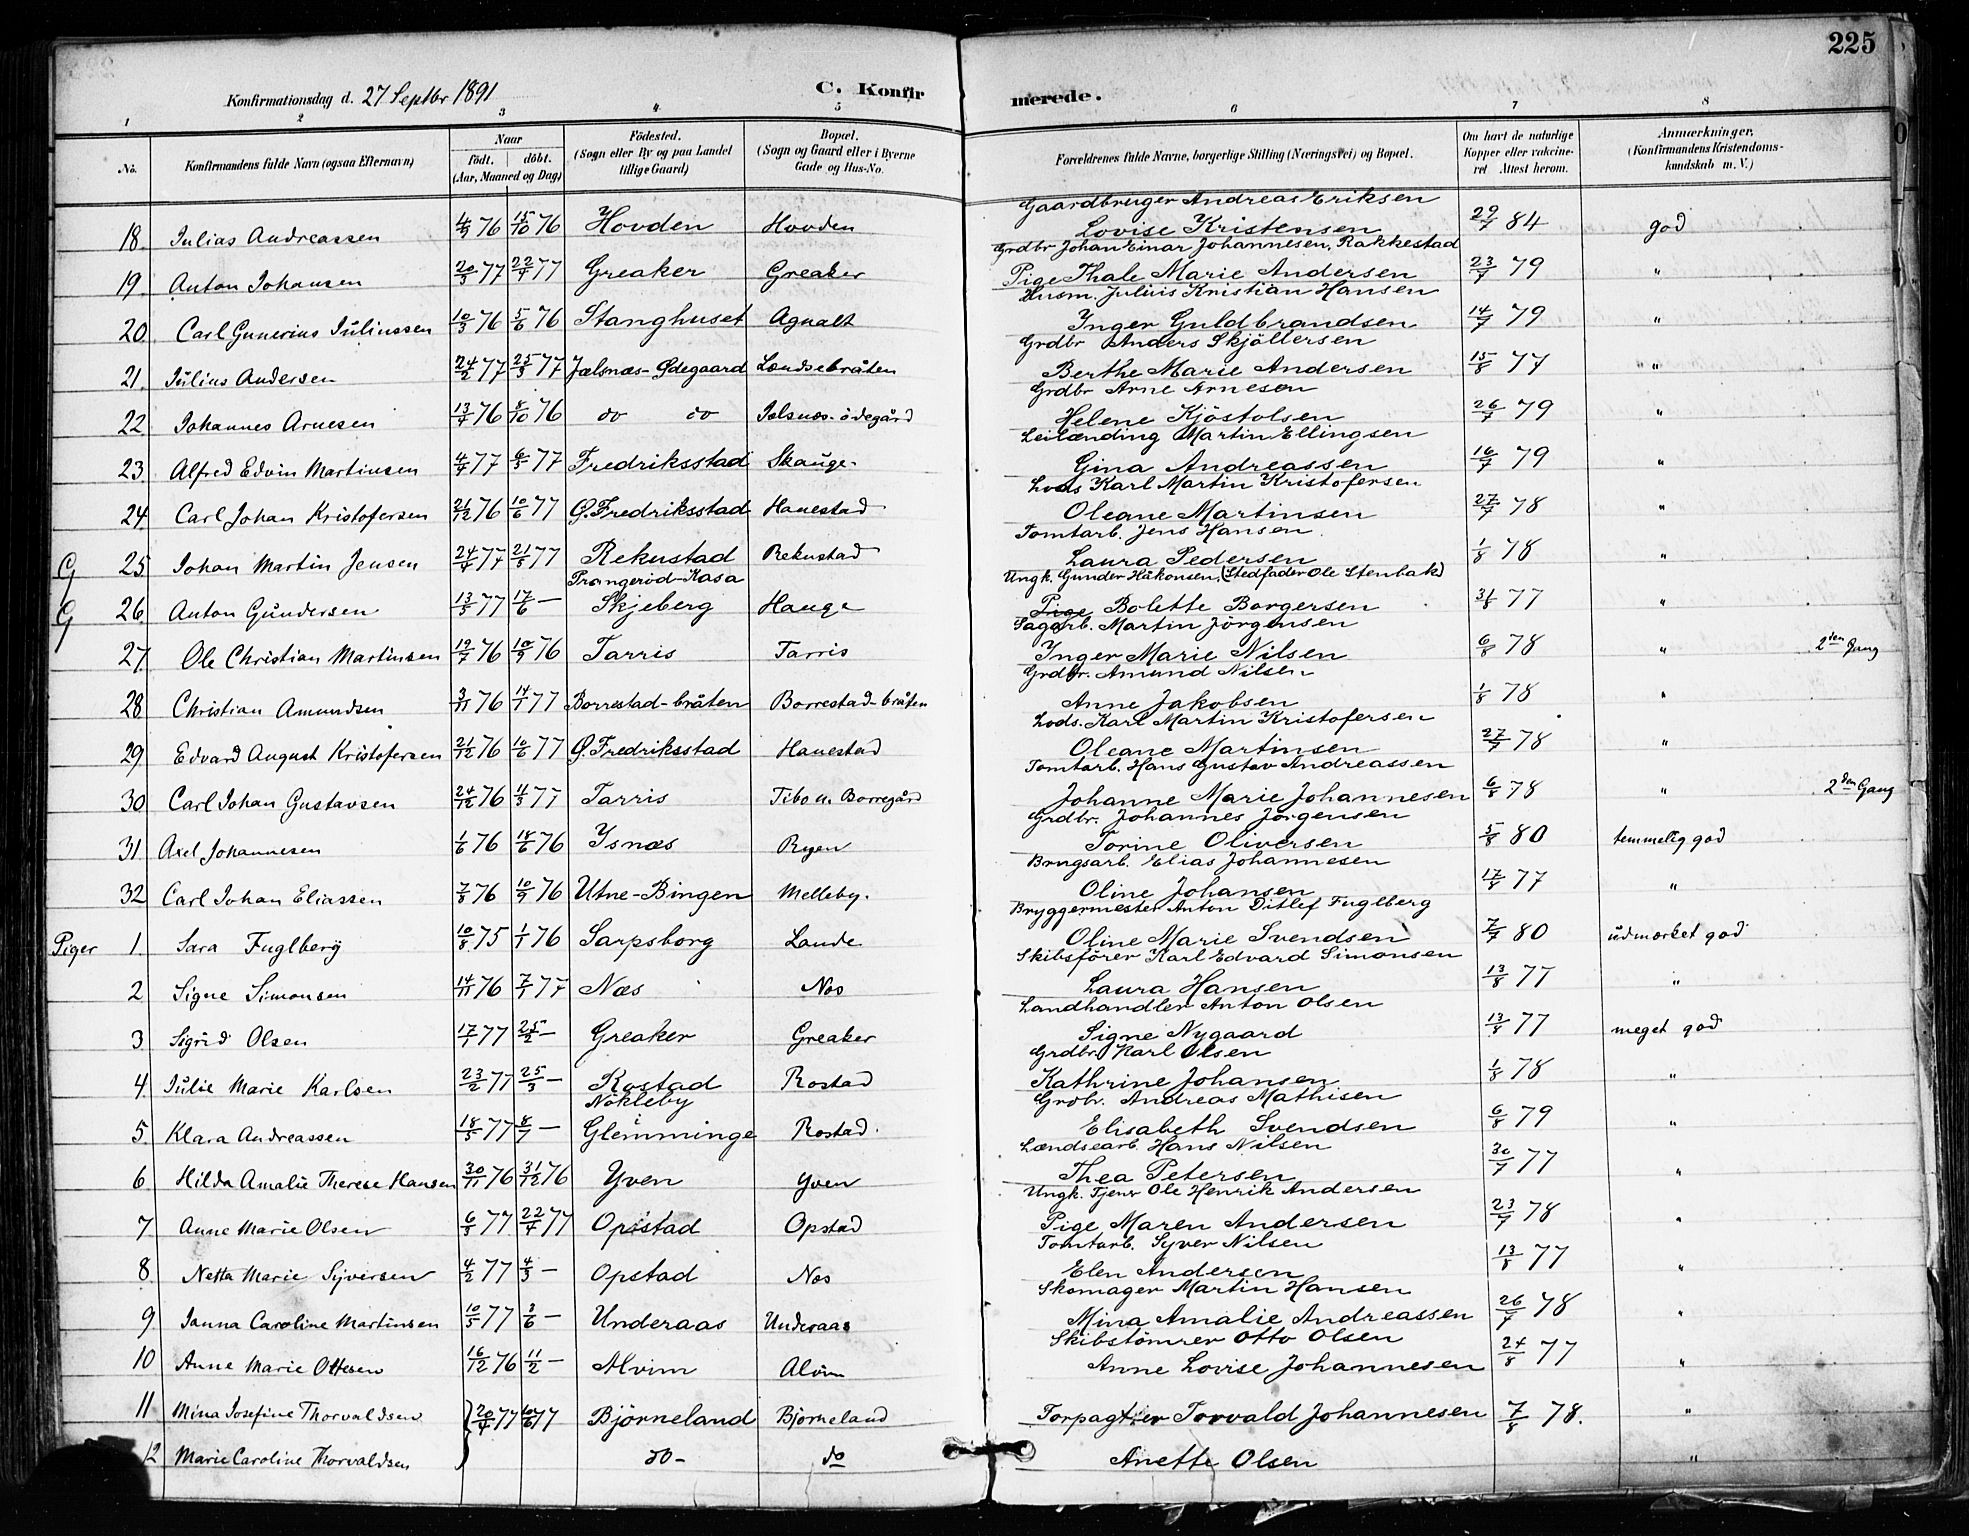 225
Konfirmationsdag d. 27 Septbr 1891
C. Konfirmerede.
1 2 3 4 5 6 7 8
No. | Konfirmandens fulde Navn (ogsaa Efternavn) | Naar født. | døbt. (Aar, Maaned og Dag) | Fødested. (Sogn eller By og paa Landet tillige Gaard) | Bopæl. (Sogn og Gaard eller i Byerne Gade og Hus-No. | Forældrenes fulde Navne, borgerlige Stilling (Næringsvei) og Bopæl. | Om havt de naturlige Kopper eller vakcineret Attest herom. | Anmærkninger. (Konfirmandens Kristendomskundskab m. V.)
18. Julius Andreassen 4/9 76 15/10 76 Hovden Hovden Gaardbruger Andreas Eriksen Lovise Kristensen 29/7 84 god
19. Anton Johansen 20/3 77 22/4 77 Greaker Greaker Grdbr Johan Einar Johannesen, Rakkestad Pige Thale Marie Andersen 23/7 79 "
20 Carl Gunerius Juliussen 10/3 76 5/6 76 Stanghuset Agnalt Husm. Julius Kristian Hansen Inger Guldbrandsen 14/7 79 "
21. Julius Andersen 24/2 77 25/3 77 Jælsnæs-Ødegaard Lændsebråten Grdbr Anders Skjöllersen Berthe Marie Andersen 15/8 77 "
22. Johannes Arnesen 13/7 76 8/10 76 do do Jælsnæs-ödegård Grdbr Arne Arnesen Helene Kjöstolsen 26/7 79 "
23. Alfred Edvin Martinsen 4/4 77 6/5 77 Fredriksstad Skauge Leilænding Martin Ellingsen Gina Andreassen 16/7 79 "
24 Carl Johan Kristofersen 21/12 76 10/6 77 Ø. Fredriksstad Hanestad Lods Karl Martin Kristofersen Oleane Martinsen 27/7 78 "
G 25 Johan Martin Jensen 24/4 77 21/5 77 Rekustad Rekustad Tomtarb. Jens Hansen Laura Pedersen 1/8 78 "
G 26. Anton Gundersen 13/5 77 17/6 — Prangeröd-Kasa Skjeberg Hauge Ungk. Gunder Håkonsen, (Stedfader Ole Stenbak) Pige Bolette Borgersen 31/8 77 "
27. Ole Christian Martinsen 19/7 76 10/9 76 Tarris Tarris Sagarb. Martin Jörgensen Inger Marie Nilsen 6/8 78 " 2den Gang
28 Christian Amundsen 3/11 76 14/1 77 Borrestad-bråten Borrestad-bråten Grdbr. Amund Nilsen Anne Jakobsen 1/8 78 "
29 Edvard August Kristofersen 21/12 76 10/6 77 Ø. Fredriksstad Hanestad Lods. Karl Martin Kristofersen Oleane Martinsen 27/7 78 "
30 Carl Johan Gustavsen 24/12 76 11/3 77 Tarris Tibo u. Borregård Tomtarb. Hans Gustav Andreassen Johanne Marie Johannesen 6/8 78 " 2den Gang
31 Axel Johannesen 1/6 76 18/6 76 Ysnæs Ryen Grdbr. Johannes Jörgensen Torine Oliversen 5/8 80 temmelig god
32 Carl Johan Eliassen 7/8 76 10/9 76 Utne-Bingen Melleby. Brugsarb. Elias Johannesen Oline Johansen 17/8 77 "
Piger 1. Sara Fuglberg 10/8 75 1/1 76 Sarpsborg Lande Bryggermester Anton Ditlef Fuglberg Oline Marie Svendsen 7/7 80 udmærket god
2 Signe Simonsen 14/11 76 7/1 77 Næs Næs Skibsförer Karl Edvard Simonsen Laura Hansen 13/8 77 "
3 Sigrid Olsen 17/1 77 25/2 — Greaker Greaker Landhandler Anton Olsen Signe Nygaard 13/8 77 meget god
4. Julie Marie Karlsen 23/2 77 25/3 — Rostad Rostad Grdbr Karl Olsen Kathrine Johansen 1/8 78 "
5. Klara Andreassen 18/5 77 8/7 — Nökleby Glemminge Rostad. Grdbr. Andreas Mathisen Elisabeth Svendsen 6/8 79 "
6 Hilda Amalie Therese Hansen 30/11 76 31/12 76 Yven Yven Lændsearb. Hans Nilsen Thea Petersen 30/7 77 "
7 Anne Marie Olsen 6/3 77 22/4 77 Opstad Opstad Ungk. Tjener Ole Henrik Andersen Pige Maren Andersen 23/7 78 "
8. Netta Marie Syversen 4/2 77 4/3 — Opstad Næs Tomtarb. Syver Nilsen Elen Andersen 13/8 77 "
9 Janna Caroline Martinsen 10/5 77 3/6 — Underaas Underaas Skomager Martin Hansen Mina Amalie Andreassen 26/7 78 "
10 Anne Marie Ottesen 16/12 76 11/2 — Alvim Alvim Skibstömrer Otto Olsen Anne Lovise Johannesen 24/8 77 "
11 Mina Josefine Thorvaldsen 20/4 77 10/6 77 Björneland Bjorneland Forpagter Torvald Johannesen 7/8 78. "
12 Marie Caroline Thorvaldsen do- do Anette Olsen "